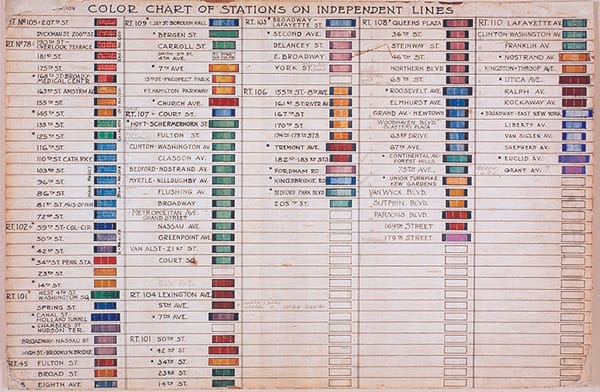 COLOR CHART OF STATIONS ON INDEPENDENT LINES
RT. Nº105 • 207TH ST.
DYCKMAN ST. 200TH ST.
RT. Nº78 190TH ST. OVERLOOK TERRACE
181ST ST.
175TH ST.
168TH ST. BROADWAY MEDICAL CENTR.
163RD ST. AMSTRM AV.
155TH ST.
145TH ST.
135TH ST.
125TH ST.
116TH ST.
110TH ST. CATH. PKY.
103RD ST.
96TH ST.
86TH ST.
81ST ST. MUS. OF N.H.
72ND ST.
RT. 102 • 59TH ST. COL. CIR.
50TH ST.
42ND ST.
34TH ST. PENN. STA.
23RD ST.
14TH ST.
RT. 101 WEST 4TH ST. WASHINGTON SQ.
SPRING ST.
CANAL ST. HOLLAND TUNNEL
CHAMBERS ST. HUDSON TER.
BROADWAY-NASSAU ST.
HIGH ST.-BROOKLYN BRIDGE
RT. 45 FULTON ST.
BROAD ST.
EIGHTH AVE.
RT. 109 • JAY ST. BOROUGH HALL
BERGEN ST.
CARROLL ST.
SMITH - 9TH ST.
4TH AVE.
7TH AVE.
15TH ST.-PROSPECT PARK
FT. HAMILTON PARKWAY
CHURCH AVE.
RT. 107 • COURT ST.
HOYT-SCHERMERHORN ST.
FULTON ST.
CLINTON-WASHINGTON AV.
CLASSON AV.
BEDFORD-NOSTRAND AV.
MYRTLE-WILLOUGHBY AV.
FLUSHING AV.
BROADWAY
METROPOLITAN AVE. GRAND STREET
NASSAU AVE.
GREENPOINT AVE.
VAN ALST-21ST ST.
COURT SQ.
RT. 104 LEXINGTON AVE.
5TH AVE.
7TH AVE.
RT. 101 50TH ST.
42ND ST.
34TH ST.
23RD ST.
14TH ST.
RT. 103 BROADWAY-LAFAYETTE ST.
SECOND AVE.
DELANCEY ST.
E. BROADWAY
YORK ST.
RT. 106 155TH ST.-8TH AVE.
161ST ST. RIVER AV.
167TH ST.
170TH ST.
174TH-175TH STS
TREMONT AVE.
182ND-183RD STS
FORDHAM RD
KINGSBRIDGE RD.
BEDFORD PARK BLVD
205TH ST.
RT. 108 QUEENS PLAZA
36TH ST.
STEINWAY ST.
46TH ST.
NORTHERN BLVD
65TH ST.
ROOSEVELT AVE.
ELMHURST AVE.
GRAND AV.-NEWTOWN
WOODHAVEN BLVD. SLATTERY PLAZA
63RD DRIVE
67TH AVE.
CONTINENTAL AV. FOREST HILLS
75TH AVE.
UNION TURNPIKE KEW GARDENS
VAN WYCK BLVD.
SUTPHIN BLVD.
PARSONS BLVD.
169TH STREET
179TH STREET
RT. 110 LAFAYETTE AV.
CLINTON-WASHINGTON AV.
FRANKLIN AV.
NOSTRAND AV.
KINGSTON-THROOP AVE.
UTICA AVE.
RALPH AV.
ROCKAWAY AV.
BROADWAY-EAST NEW YORK
LIBERTY AV.
VAN SICLEN AV.
SHEPHERD AV.
EUCLID AV.
GRANT AV.